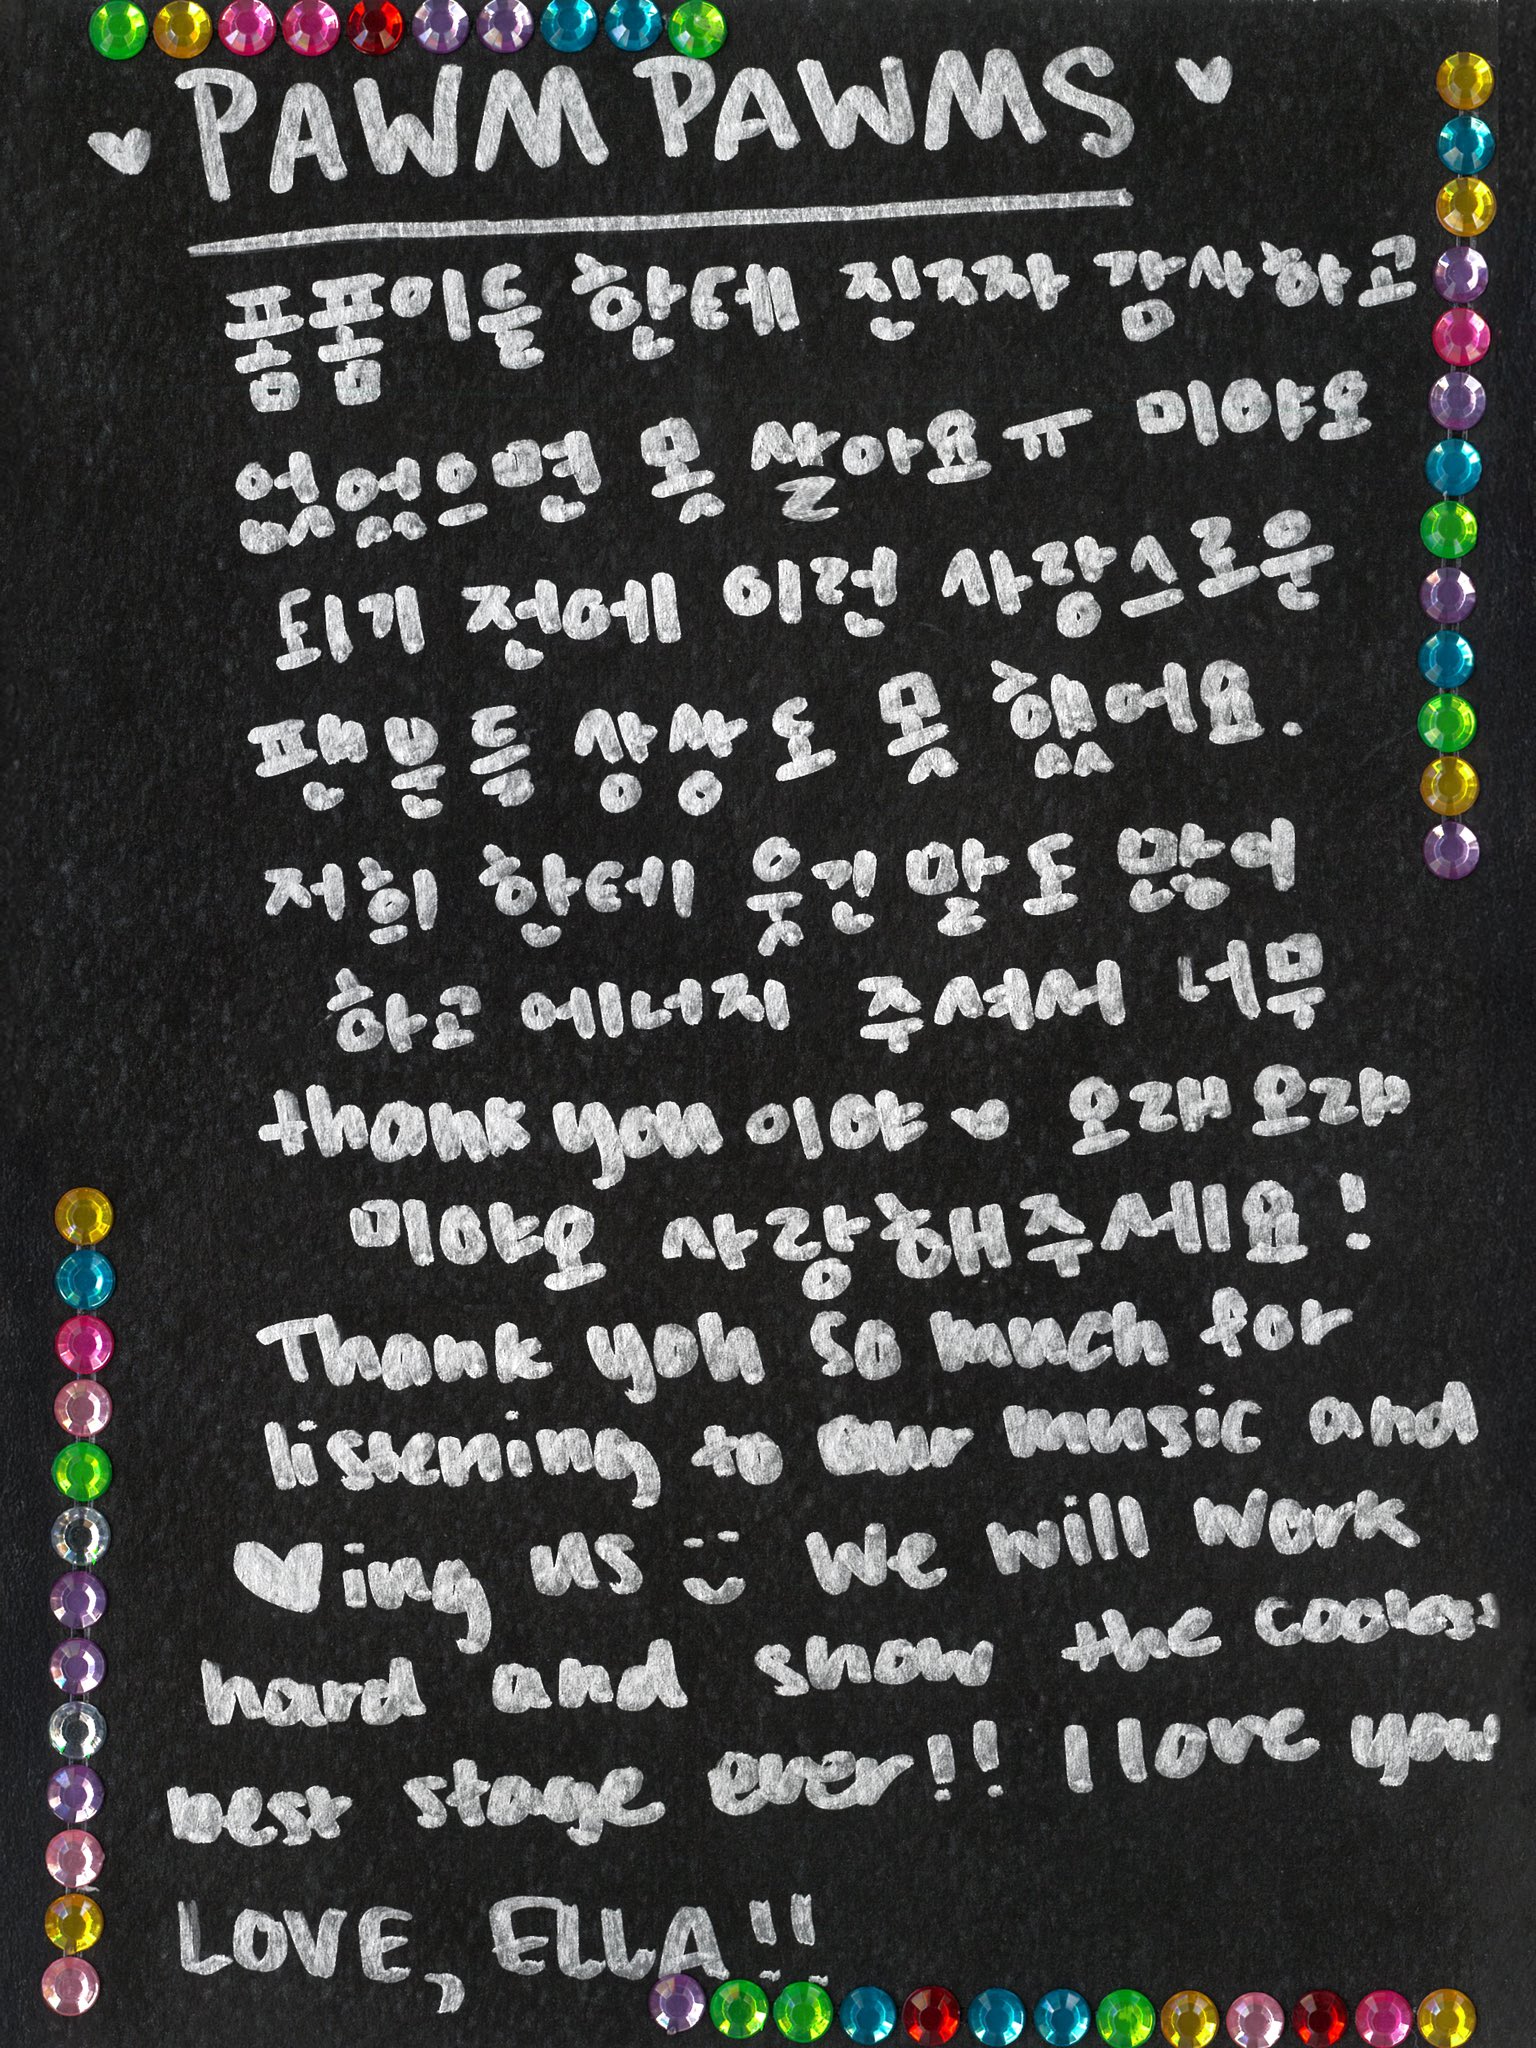 PAWM PAWMS
폼폼이들 한테 진짜 감사하고
없없으면 못 살아요ㅠ 미야오
되기 전에 이런 사랑스로운
팬분들 상상도 못 했어요.
저희 한테 웃긴 말도 많이
하고 에너지 주셔서 너무
thank you이야 오래오래
미야오 사랑해주세요!
Thank you so much for
listening to our music and
♥ing us We will work
hard and show the coolest
best stage ever!! I love you
LOVE, ELLA!!